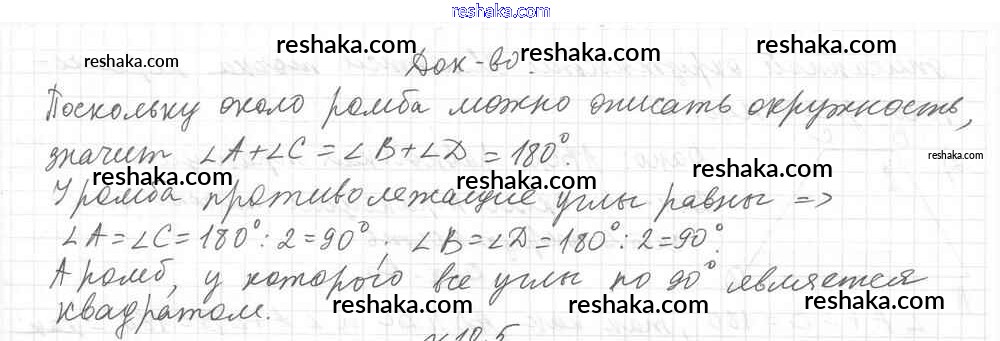 reshaka.com
reshaka.com reshaka.com reshaka.com reshaka.com
Док-во:
Поскольку около ромба можно описать окружность,
значит ∠A+∠C=∠B+∠D=180°.
reshaka.com reshaka.com reshaka.com reshaka.com
У ромба противолежащие углы равны =>
∠A=∠C=180°:2=90°. ∠B=∠D=180°:2=90°.
А ромб, у которого все углы по 90° является
квадратом.
reshaka.com reshaka.com reshaka.com reshaka.com